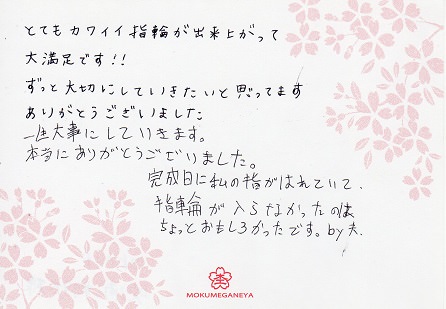 とてもカワイイ指輪が出来上がって
大満足です!!
ずっと大切にしていきたいと思ってます
ありがとうございました
一生大事にしていきます。
本当にありがとうございました。
完成日に私の指がはれていて、
指輪が入らなかったのは
ちょっとおもしろかったです。by夫.
MOKUMEGANEYA